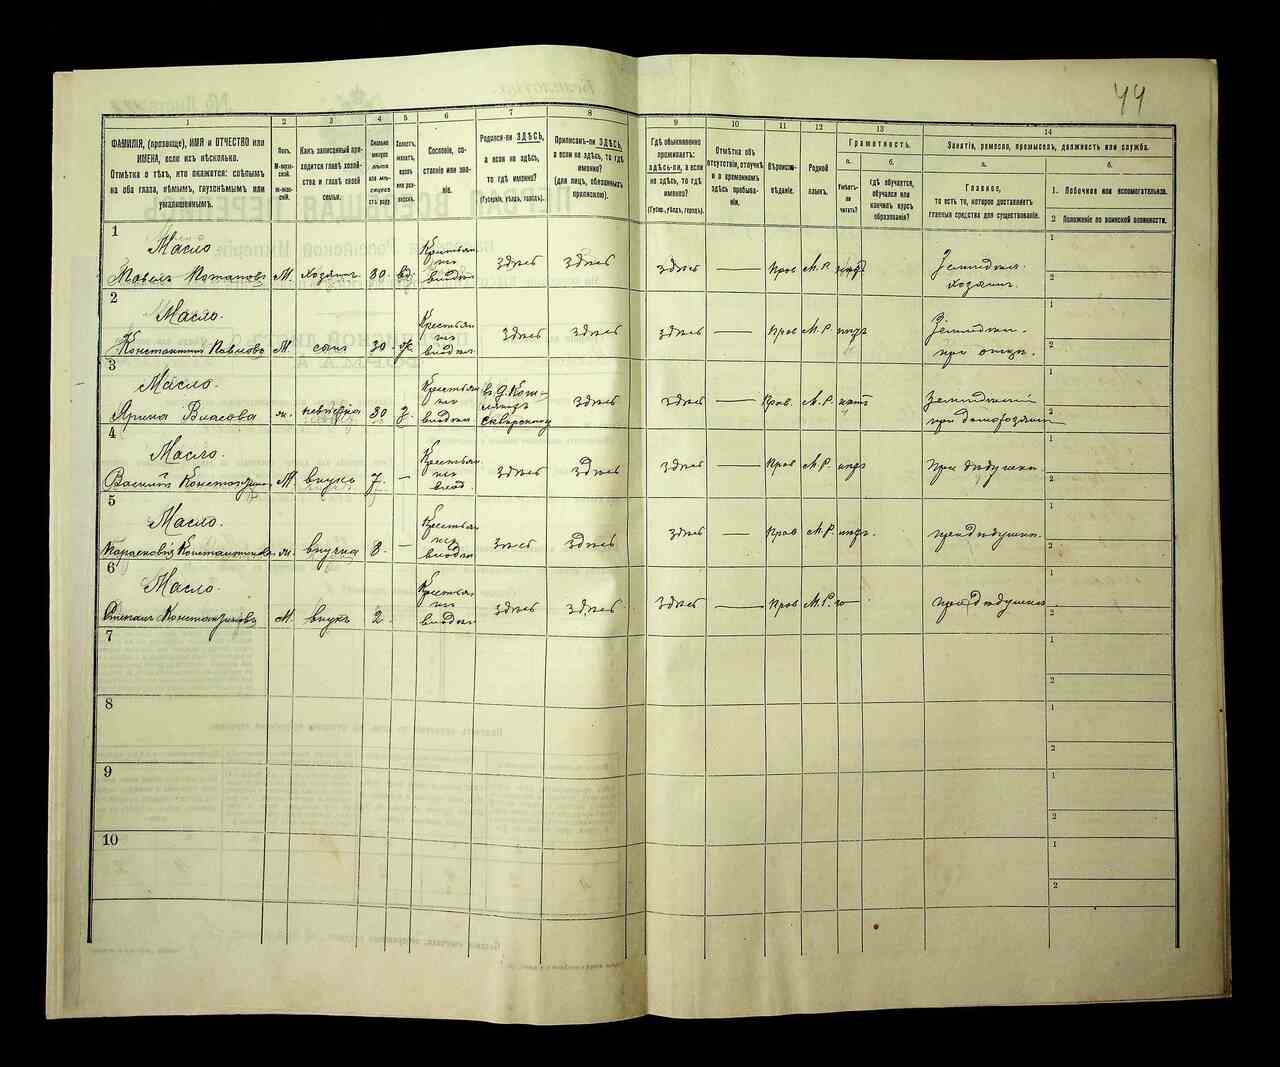 44
1 2 3 4 5 6 7 8 9 10 11 12 13 14
ФАМИЛІЯ, (прозвище), ИМЯ и ОТЧЕСТВО или
ИМЕНА, если ихъ нѣсколько.
Отмѣтка о тѣхъ, кто окажется: слѣпымъ
на оба глаза, нѣмымъ, глухонѣмымъ или
умалишеннымъ.
Полъ.
М-мужской.
Ж-женскій.
Какъ записанный приходится главѣ хозяйства и главѣ своей семьи.
Сколько минуло лѣтъ или мѣсяцевъ отъ роду.
Холостъ, женатъ, вдовъ или разведенъ.
Сословіе, состояніе или званіе.
Родился-ли ЗДѢСЬ,
а если не здѣсь,
то гдѣ именно?
(Губернія, уѣздъ, городъ).
Приписанъ-ли ЗДѢСЬ,
а если не здѣсь, то гдѣ
именно?
(для лицъ, обязанныхъ
припискою).
Гдѣ обыкновенно
проживаетъ:
здѣсь-ли, а если
не здѣсь, то гдѣ
именно?
(Губер., уѣздъ, городъ).
Отмѣтка объ
отсутствіи, отлучкѣ
и о временномъ
здѣсь пребываніи.
Вѣроисповѣданіе.
Родной
языкъ.
Грамотность.
а. б.
Умѣетъ-ли читать?
гдѣ обучается,
обучался или
кончилъ курсъ
образованія?
Занятіе, ремесло, промыселъ, должность или служба.
а. б.
Главное,
то есть то, которое доставляетъ
главныя средства для существованія.
1. Побочное или вспомогательное.
2 Положеніе по воинской повинности.
1
Масло
Павелъ Потаповъ М. хозяинъ 80. вд. Крестьян изъ владѣл здѣсь здѣсь здѣсь — Прав М.Р.
Земледѣл. хозяинъ.
1
2
2
Масло.
Константинъ Павловъ М. сынъ 30. ж. Крестьян изъ владѣл здѣсь здѣсь здѣсь — Прав М.Р. нѣтъ
Земледѣл. при отцѣ.
1
2
3
Масло.
Ярина Власова ж. невѣстка 30 з. Крестьян изъ владѣл
Сквирскаго здѣсь здѣсь — Прав. М.Р. нѣтъ
Земледѣлій при домохозяинѣ
1
2
4
Масло.
Василій Константиновъ М внукъ 7. — Крестьян изъ влад. здѣсь здѣсь здѣсь — Прав М.Р. нѣтъ при дѣдушкѣ.
1
2
5
Масло.
Парасковія Константинова ж. внучка 8. — Крестьян изъ владѣл здѣсь здѣсь здѣсь — Прав М.Р. нѣтъ. при дѣдушкѣ.
1
2
6
Масло.
Степанъ Константиновъ М. внукъ 2. Крестьян изъ владѣл здѣсь здѣсь здѣсь — Прав М.Р. при дѣдушкѣ
1
2
7
1
2
8
1
2
9
1
2
10
1
2